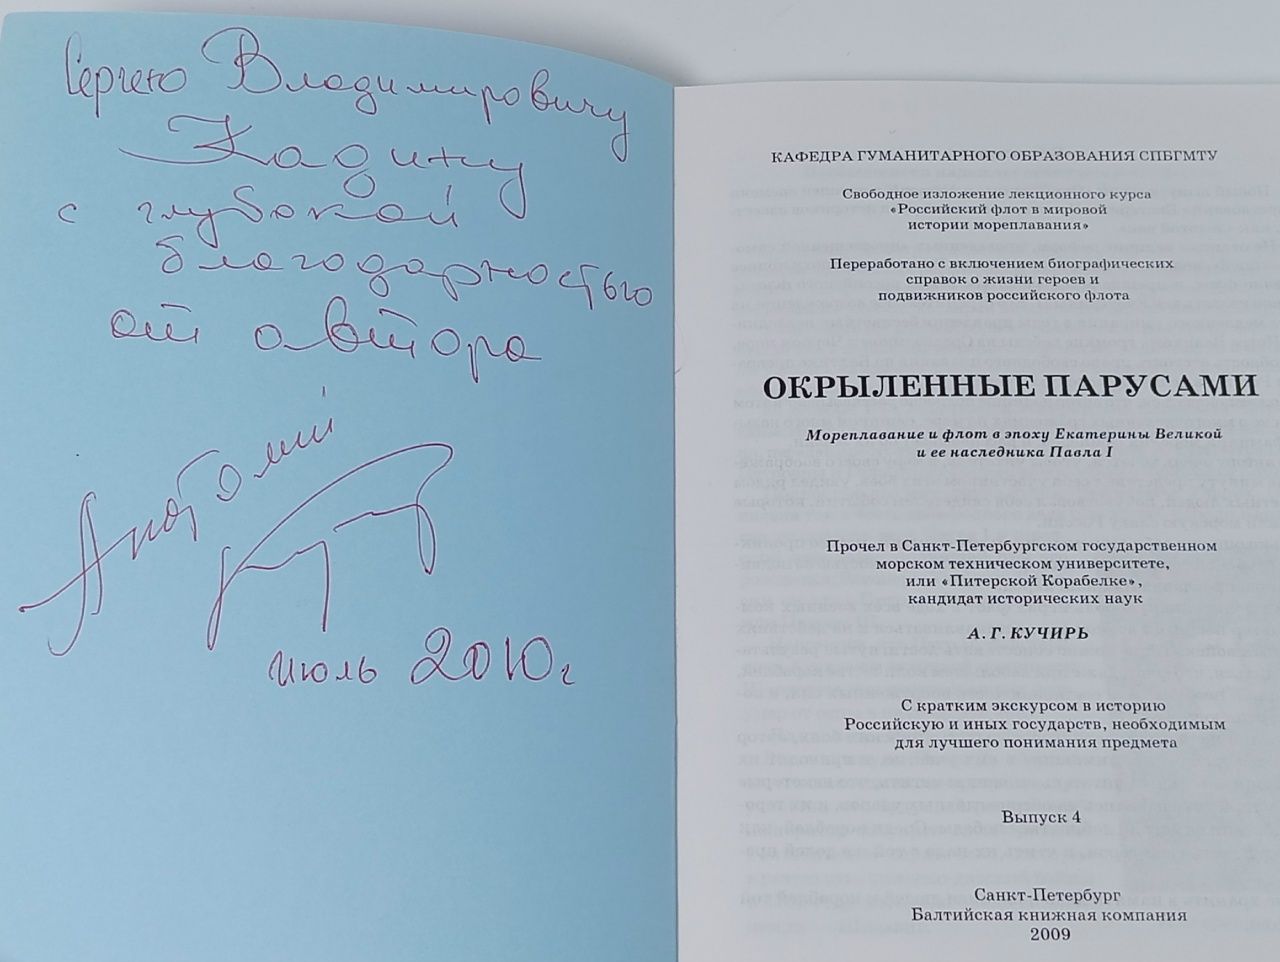 Сергею Владимировичу
Кадину
с глубокой
благодарностью
от автора
Анатолий
июль 2010 г
КАФЕДРА ГУМАНИТАРНОГО ОБРАЗОВАНИЯ СПБГМТУ
Свободное изложение лекционного курса
«Российский флот в мировой
истории мореплавания»
Переработано с включением биографических
справок о жизни героев и
подвижников российского флота
ОКРЫЛЕННЫЕ ПАРУСАМИ
Мореплавание и флот в эпоху Екатерины Великой
и ее наследника Павла I
Прочел в Санкт-Петербургском государственном
морском техническом университете,
или «Питерской Корабелке»,
кандидат исторических наук
А. Г. КУЧИРЬ
С кратким экскурсом в историю
Российскую и иных государств, необходимым
для лучшего понимания предмета
Выпуск 4
Санкт-Петербург
Балтийская книжная компания
2009